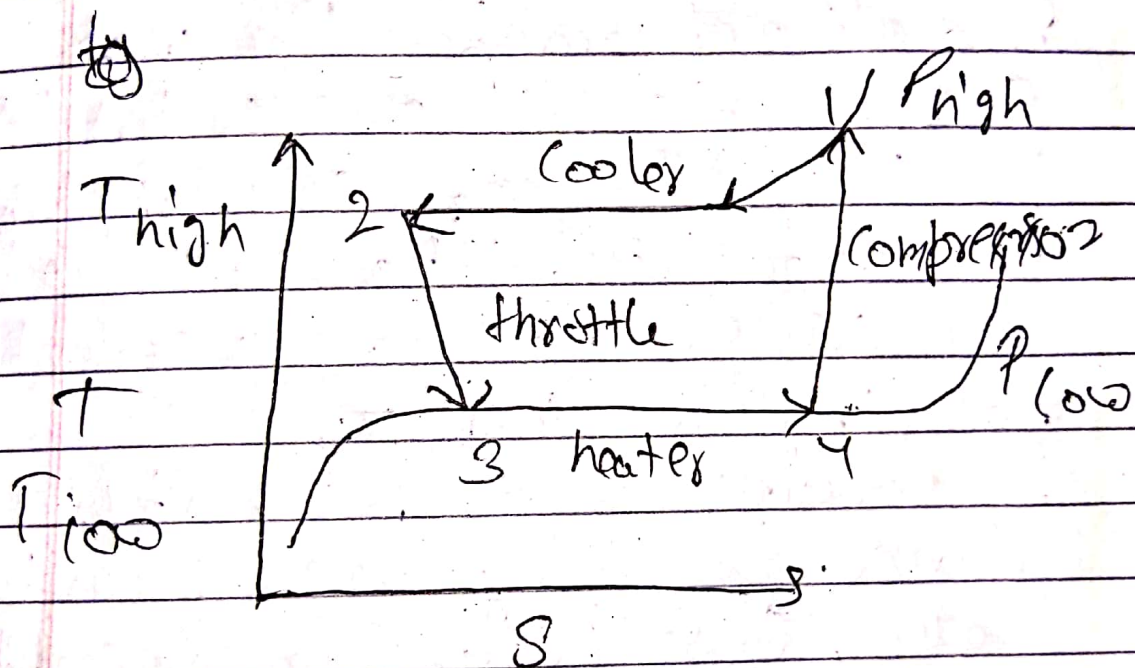 1 Phigh
Cooler
Thigh 2
Compressor
throttle
T Plow
3 heater 4
Tlow
S